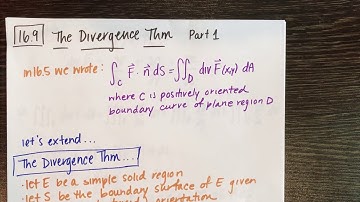 16.9 The Divergence Thm Part 1
in 16.5 we wrote: ∫_C F⃗ · n⃗ dS = ∬_D div F⃗(x,y) dA
where C is positively oriented
boundary curve of plane region D
let's extend...
The Divergence Thm...
· let E be a simple solid region
· let S be the boundary surface of E given
orientation